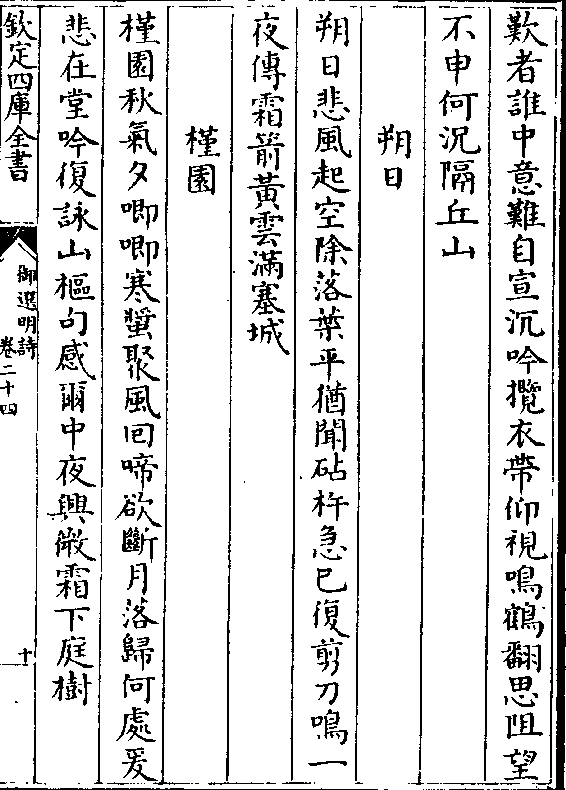 歎者誰中意難自宣沉吟攬衣帶仰視鳴鶴翻思阻望
不申何沉隔丘山
朔日
朔日悲風起空除落葉平猶聞砧杵急已復剪刀鳴一
夜傳霜箭黃雲滿塞城
槿園
槿園秋氣夕唧唧寒螿聚風回啼欲斷月落歸何處爰
悲在堂吟復詠山樞句感爾中夜興微霜下庭樹
欽定四庫全書
御選明詩
卷二十四
十